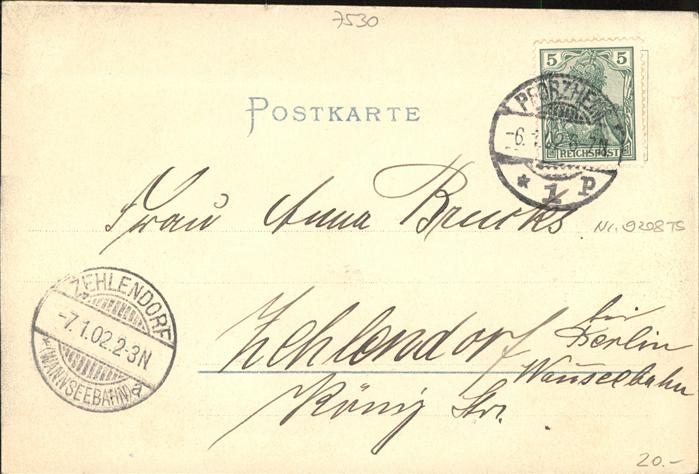 7530
POSTKARTE
5 5
REICHSPOST
PFORZHEIM
-6.1.02.6-7N
* 1 P
Frau Anna Brucks
Nr. 9298TS
ZEHLENDORF
-7.1.02.2-3N
*(WANNSEEBAHN)a
Zehlendorf bei Berlin
Wanseebahn
König Str.
20.-